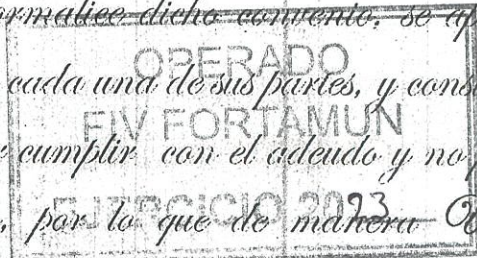 formalice dicho convenio, se ap
OPERADO
cada una de sus partes, y cons
FIV FORTAMUN
cumplir con el adeudo y no
EJERCICIO 2023
por lo que de manera